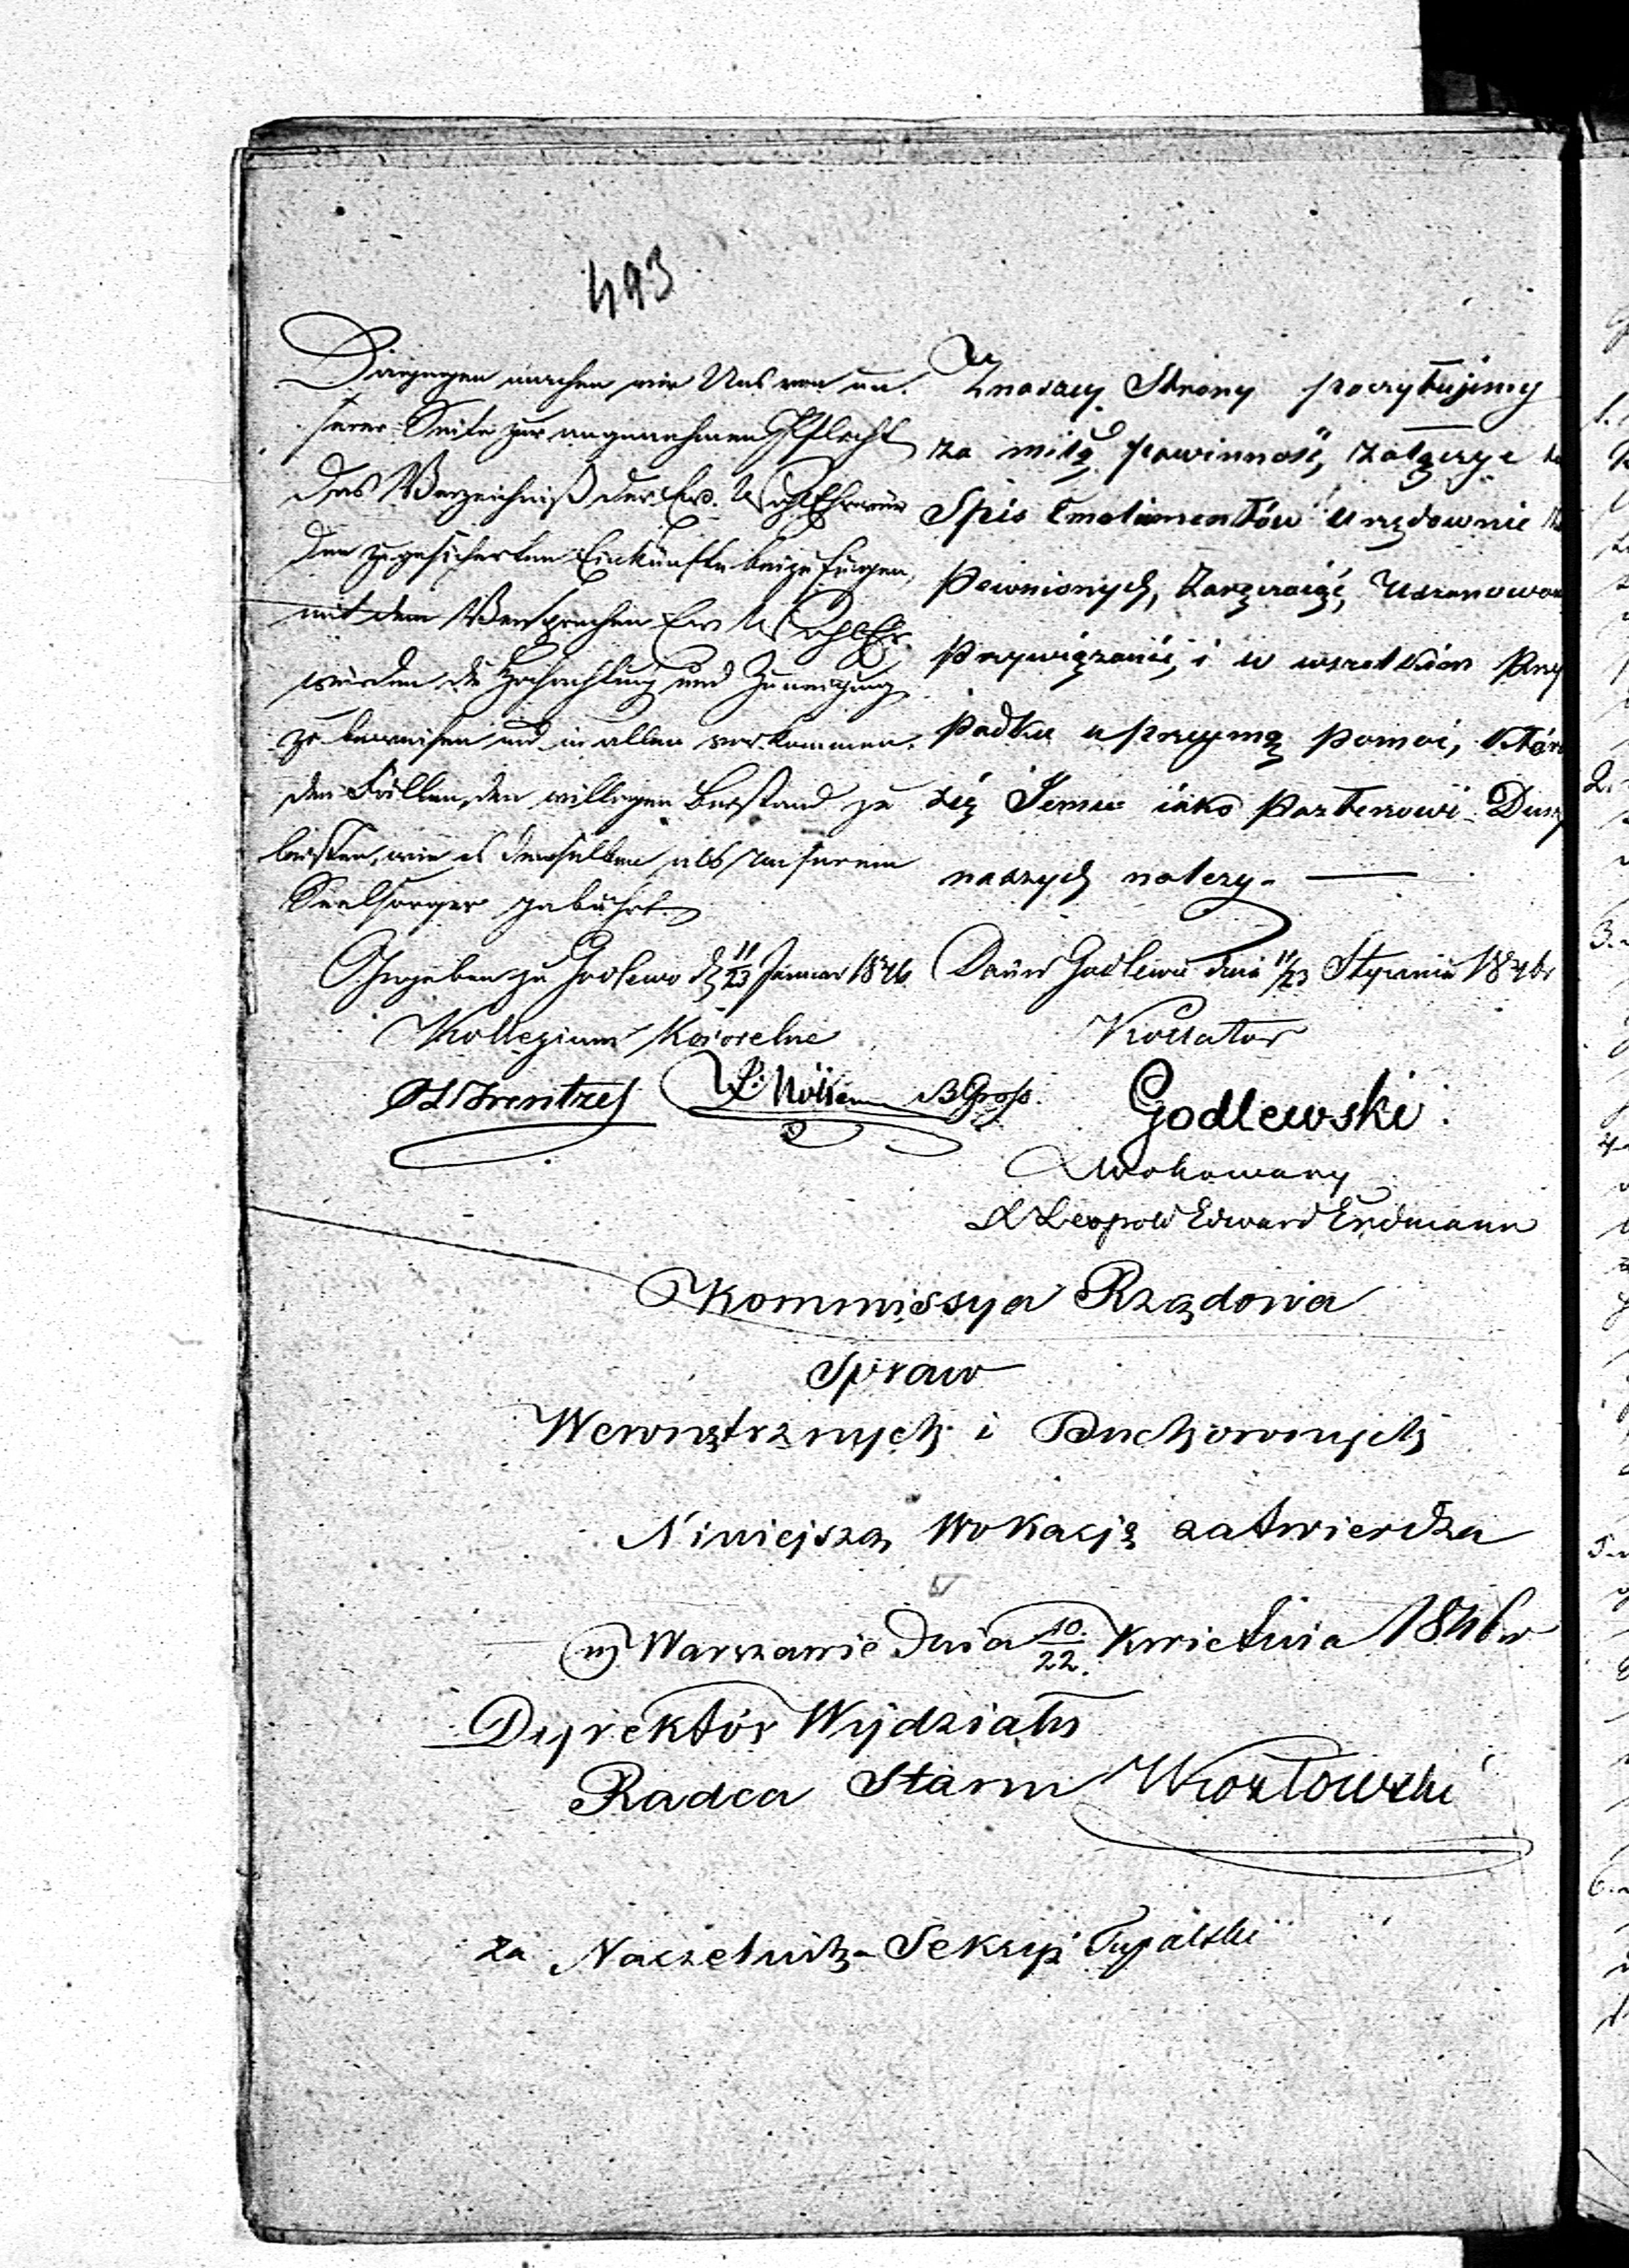 493
Dagegen machen wir Uns von un-
serer Seite zur angenehmen Pflicht
das Verzeichniß der Ew. WohlEhrwür
den zugesicherten Einkünfte beizufügen,
mit dem Versprechen Ew WohlEhr-
würden die Hochachtung und Zuneigung
zu beweisen und in allen vorkommen-
den Fällen, den willigen Beistand zu
leisten, wie es demselben als unserem
Seelsorger gebührt.
Gegeben zu Godlewo d 11/23 Januar 1846
Kollegium Kościelne
B Gross.
Z naszey Strony poczytujemy
za miłą powinność, załączyć
Spis Emolumentów urzędownie
pewnionych, zaręczaiąc, Uszanowa
przywiązanie, i w wszelkim Przy
padku uprzeymą pomoc, któr
się Jemu iako Pasterzowi Dusz
naszych należy. —
Dan w Godlewie dnia 11/23 Stycznia 1846r
Kollator
Godlewski.
Wokowany
X Leopold Edward Erdmann
Kommissya Rządowa
Spraw
Wewnętrznych i Duchownych
Niniejszą Wokacją zatwierdza
w Warszawie Dnia 10/22. Kwietnia 1846 r
Dyrektór Wydziału
Radca Stanu
za Naczelnika Sekcyi